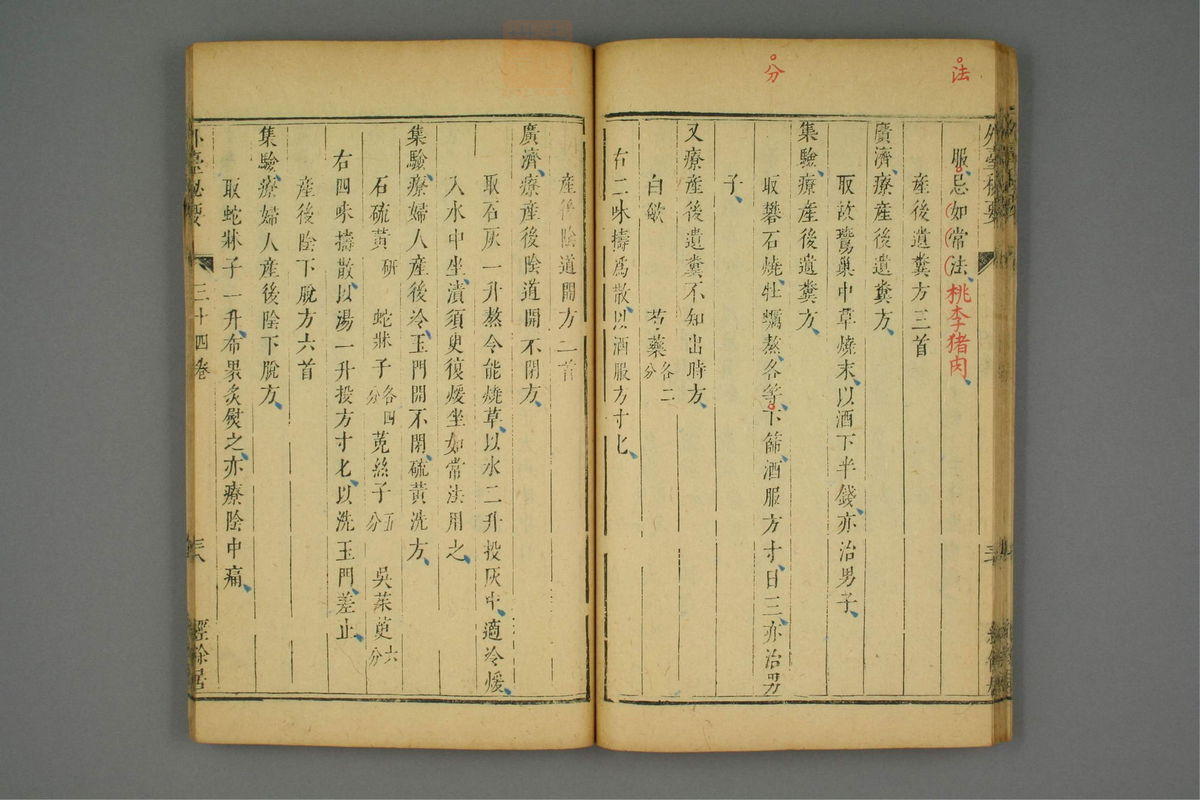 法
分
服忌如常法桃李猪肉
産後遺糞方三首
廣濟療産後遺糞方
取故鷰巢中草燒末以酒下半錢亦治男子
集驗療産後遺糞方
取礬石燒牡蠣熬各等下篩酒服方寸日三亦治男
子
又療産後遺糞不知出時方
白歛 芍藥各二分
右二味擣爲散以酒服方寸匕
産後陰道開方二首
廣濟療産後陰道開不閉方
取石灰一升熬令能燒草以水二升投灰中適冷煖
入水中坐漬須臾復煖坐如常法用之
集驗療婦人産後冷玉門開不閉硫黃洗方
石硫黃研 蛇牀子各四分 菟絲子五分 吳茱萸六分
右四味擣散以湯一升投方寸匕以洗玉門差止
産後陰下脫方六首
集驗療婦人産後陰下脫方
取蛇牀子一升布褁炙熨之亦療陰中痛
外臺秘要 三十四卷 三八 經餘居